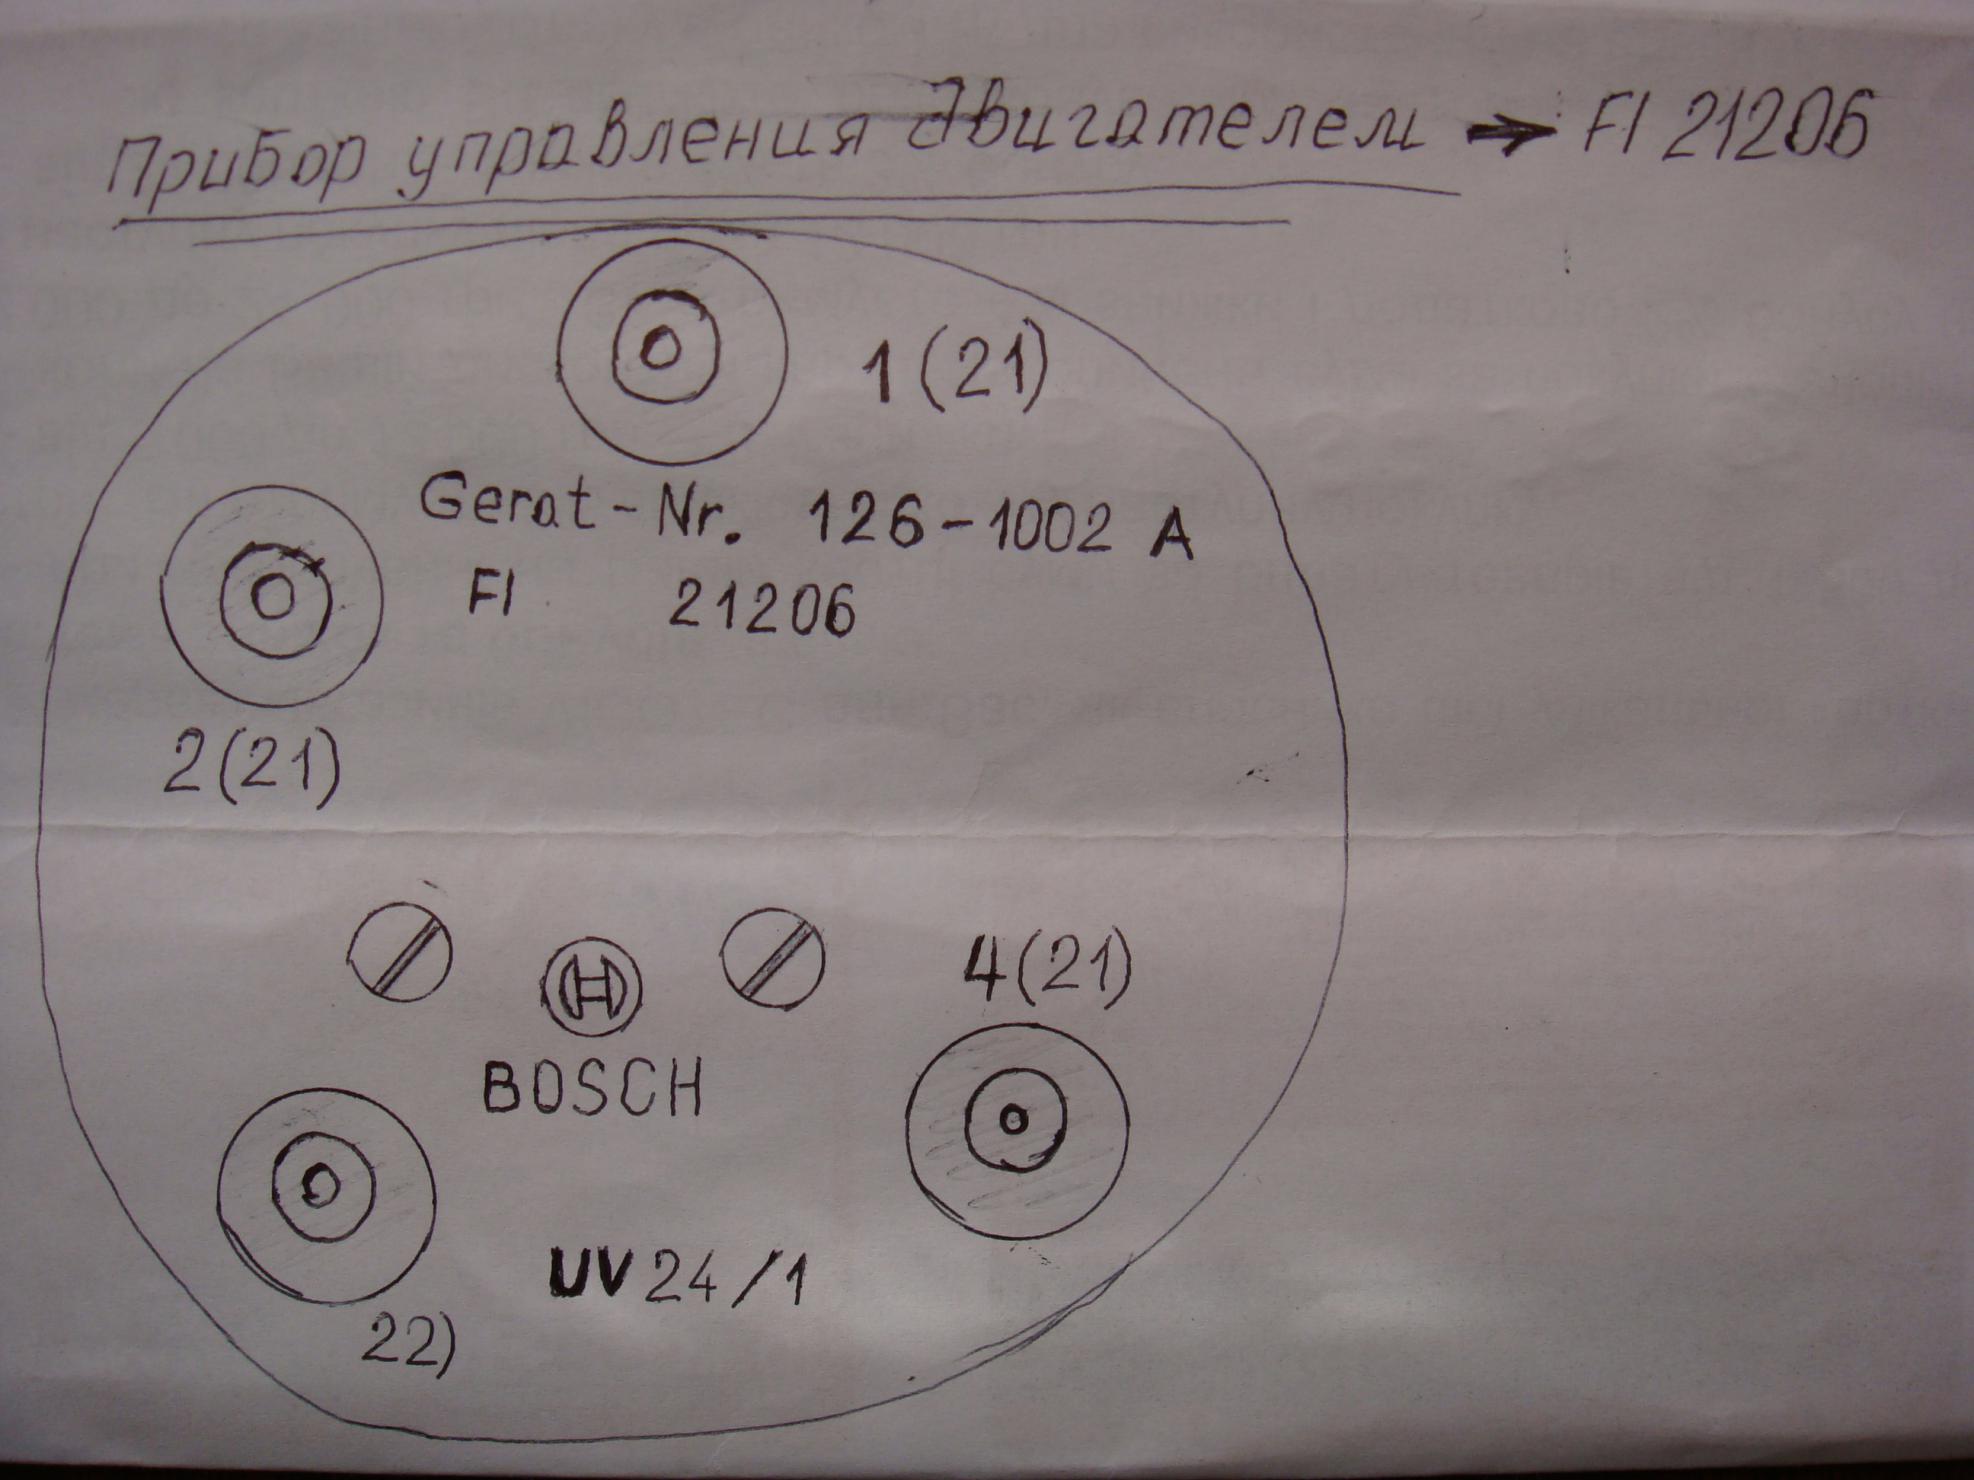 Прибор управления двигателем → Fl 21206
1 (21)
Gerat - Nr. 126 - 1002 A
Fl 21206
2 (21)
4 (21)
BOSCH
UV 24 / 1
22)